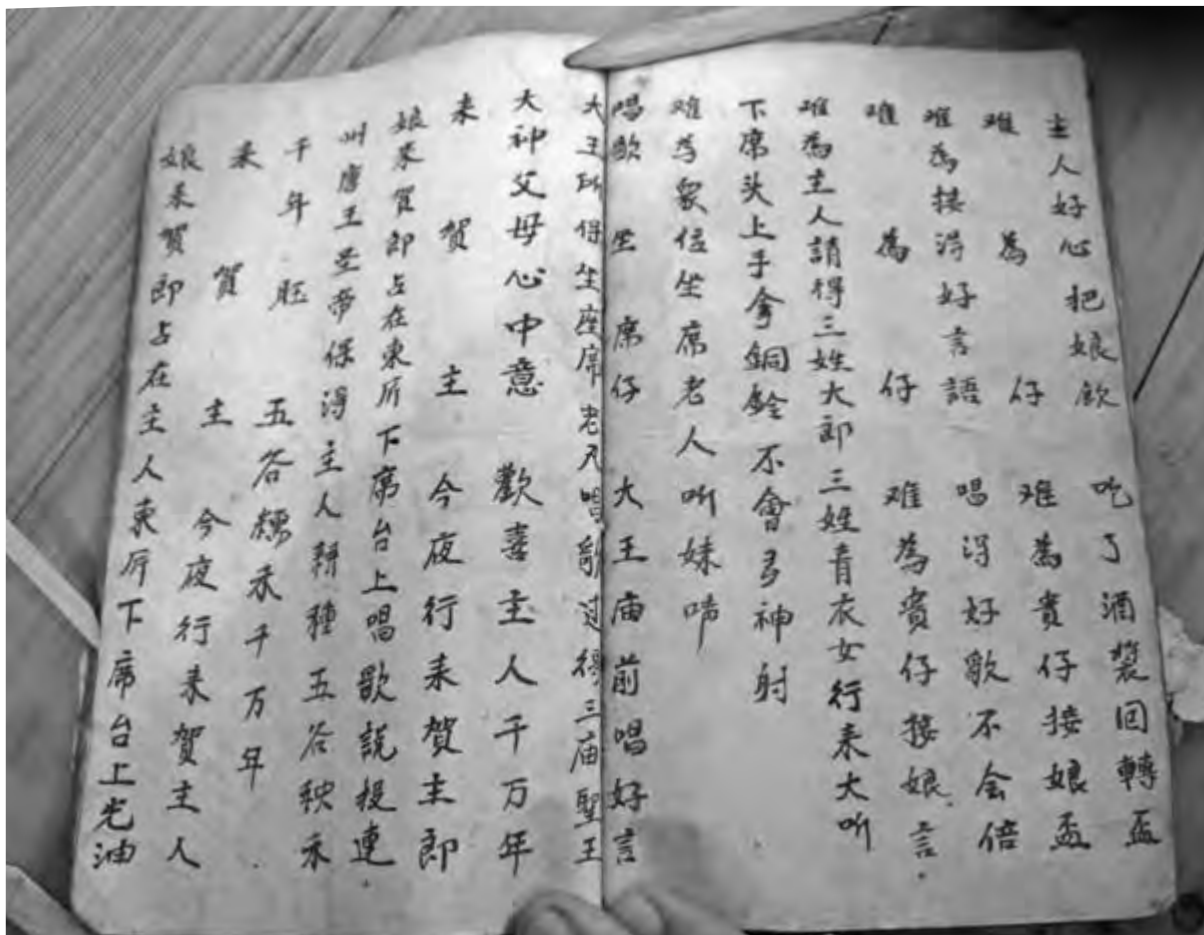 主人好心把娘飲 吃了酒漿回轉盃
难為仔 难為貴仔接娘盃
难為接淂好言語 唱淂好歌不会倍
难為仔 难為賓仔接娘言
难為主人請得三姓大郎三姓青衣女行来大听
下席头上手拿銅鈴不會弓神射
难为眾位坐席老人听妹啼
唱歌坐席仔 大王庙前唱好言
大王所保坐座席老人唱歌过得三庙聖王
大神父母心中意 歡喜主人千万年
来賀主 今夜行来賀主郎
娘来賀郎占在東所下席台上唱歌説段連
州唐王圣帝保淂主人耕種五谷秧禾
千年旺 五谷禾千万年
来賀主 今夜行来賀主人
娘来賀郎占在主人東所下席台上光油